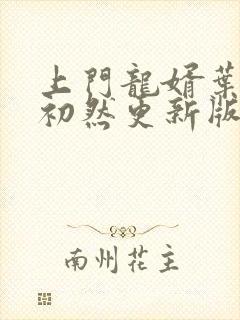 上門龍婿葉
初然更新版
南州花主